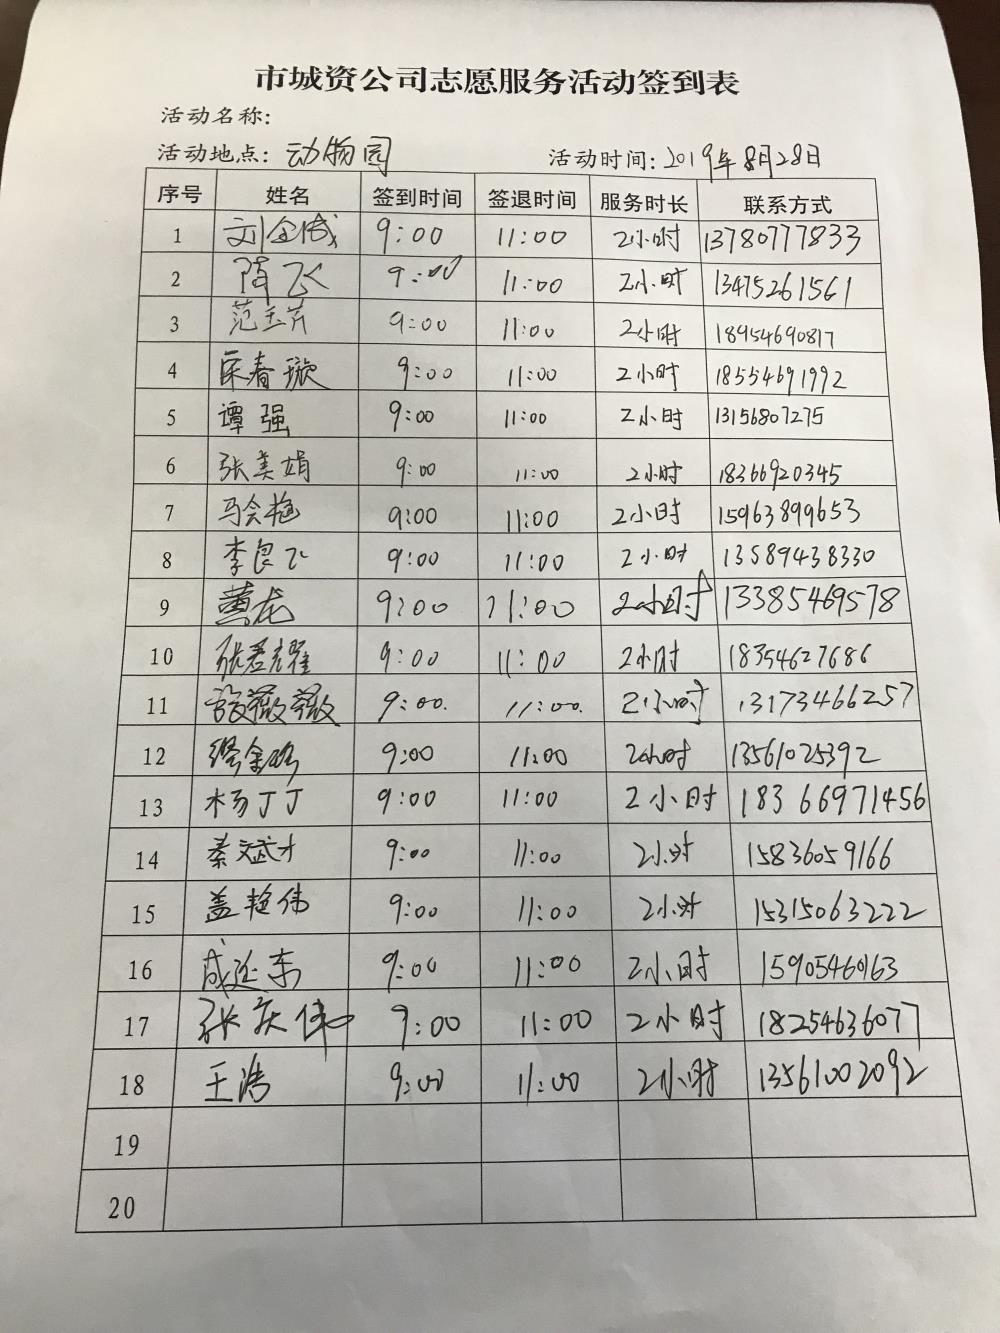 市城资公司志愿服务活动签到表
活动名称:
活动地点: 动物园 活动时间: 2019年8月28日
序号 姓名 签到时间 签退时间 服务时长 联系方式
1 9:00 11:00 2小时 13780777833
2 隋飞 9:00 11:00 2小时 13475261561
3 范玉芹 9:00 11:00 2小时 18954690817
4 宋春璇 9:00 11:00 2小时 18554691992
5 谭强 9:00 11:00 2小时 13156807275
6 张美娟 9:00 11:00 2小时 18366920345
7 马会艳 9:00 11:00 2小时 15963899653
8 李良飞 9:00 11:00 2小时 13589438330
9 黄龙 9:00 11:00 2小时 13385469578
10 张君耀 9:00 11:00 2小时 18354627686
11 薇薇 9:00. 11:00. 2小时 13173466257
12 9:00 11:00 2小时 13561025392
13 杨丁丁 9:00 11:00 2小时 18366971456
14 秦斌才 9:00 11:00 2小时 15836059166
15 盖艳伟 9:00 11:00 2小时 15315063222
16 成延东 9:00 11:00 2小时 15905460163
17 张庆伟 9:00 11:00 2小时 18254636077
18 王浩 9:00 11:00 2小时 13561002092
19
20